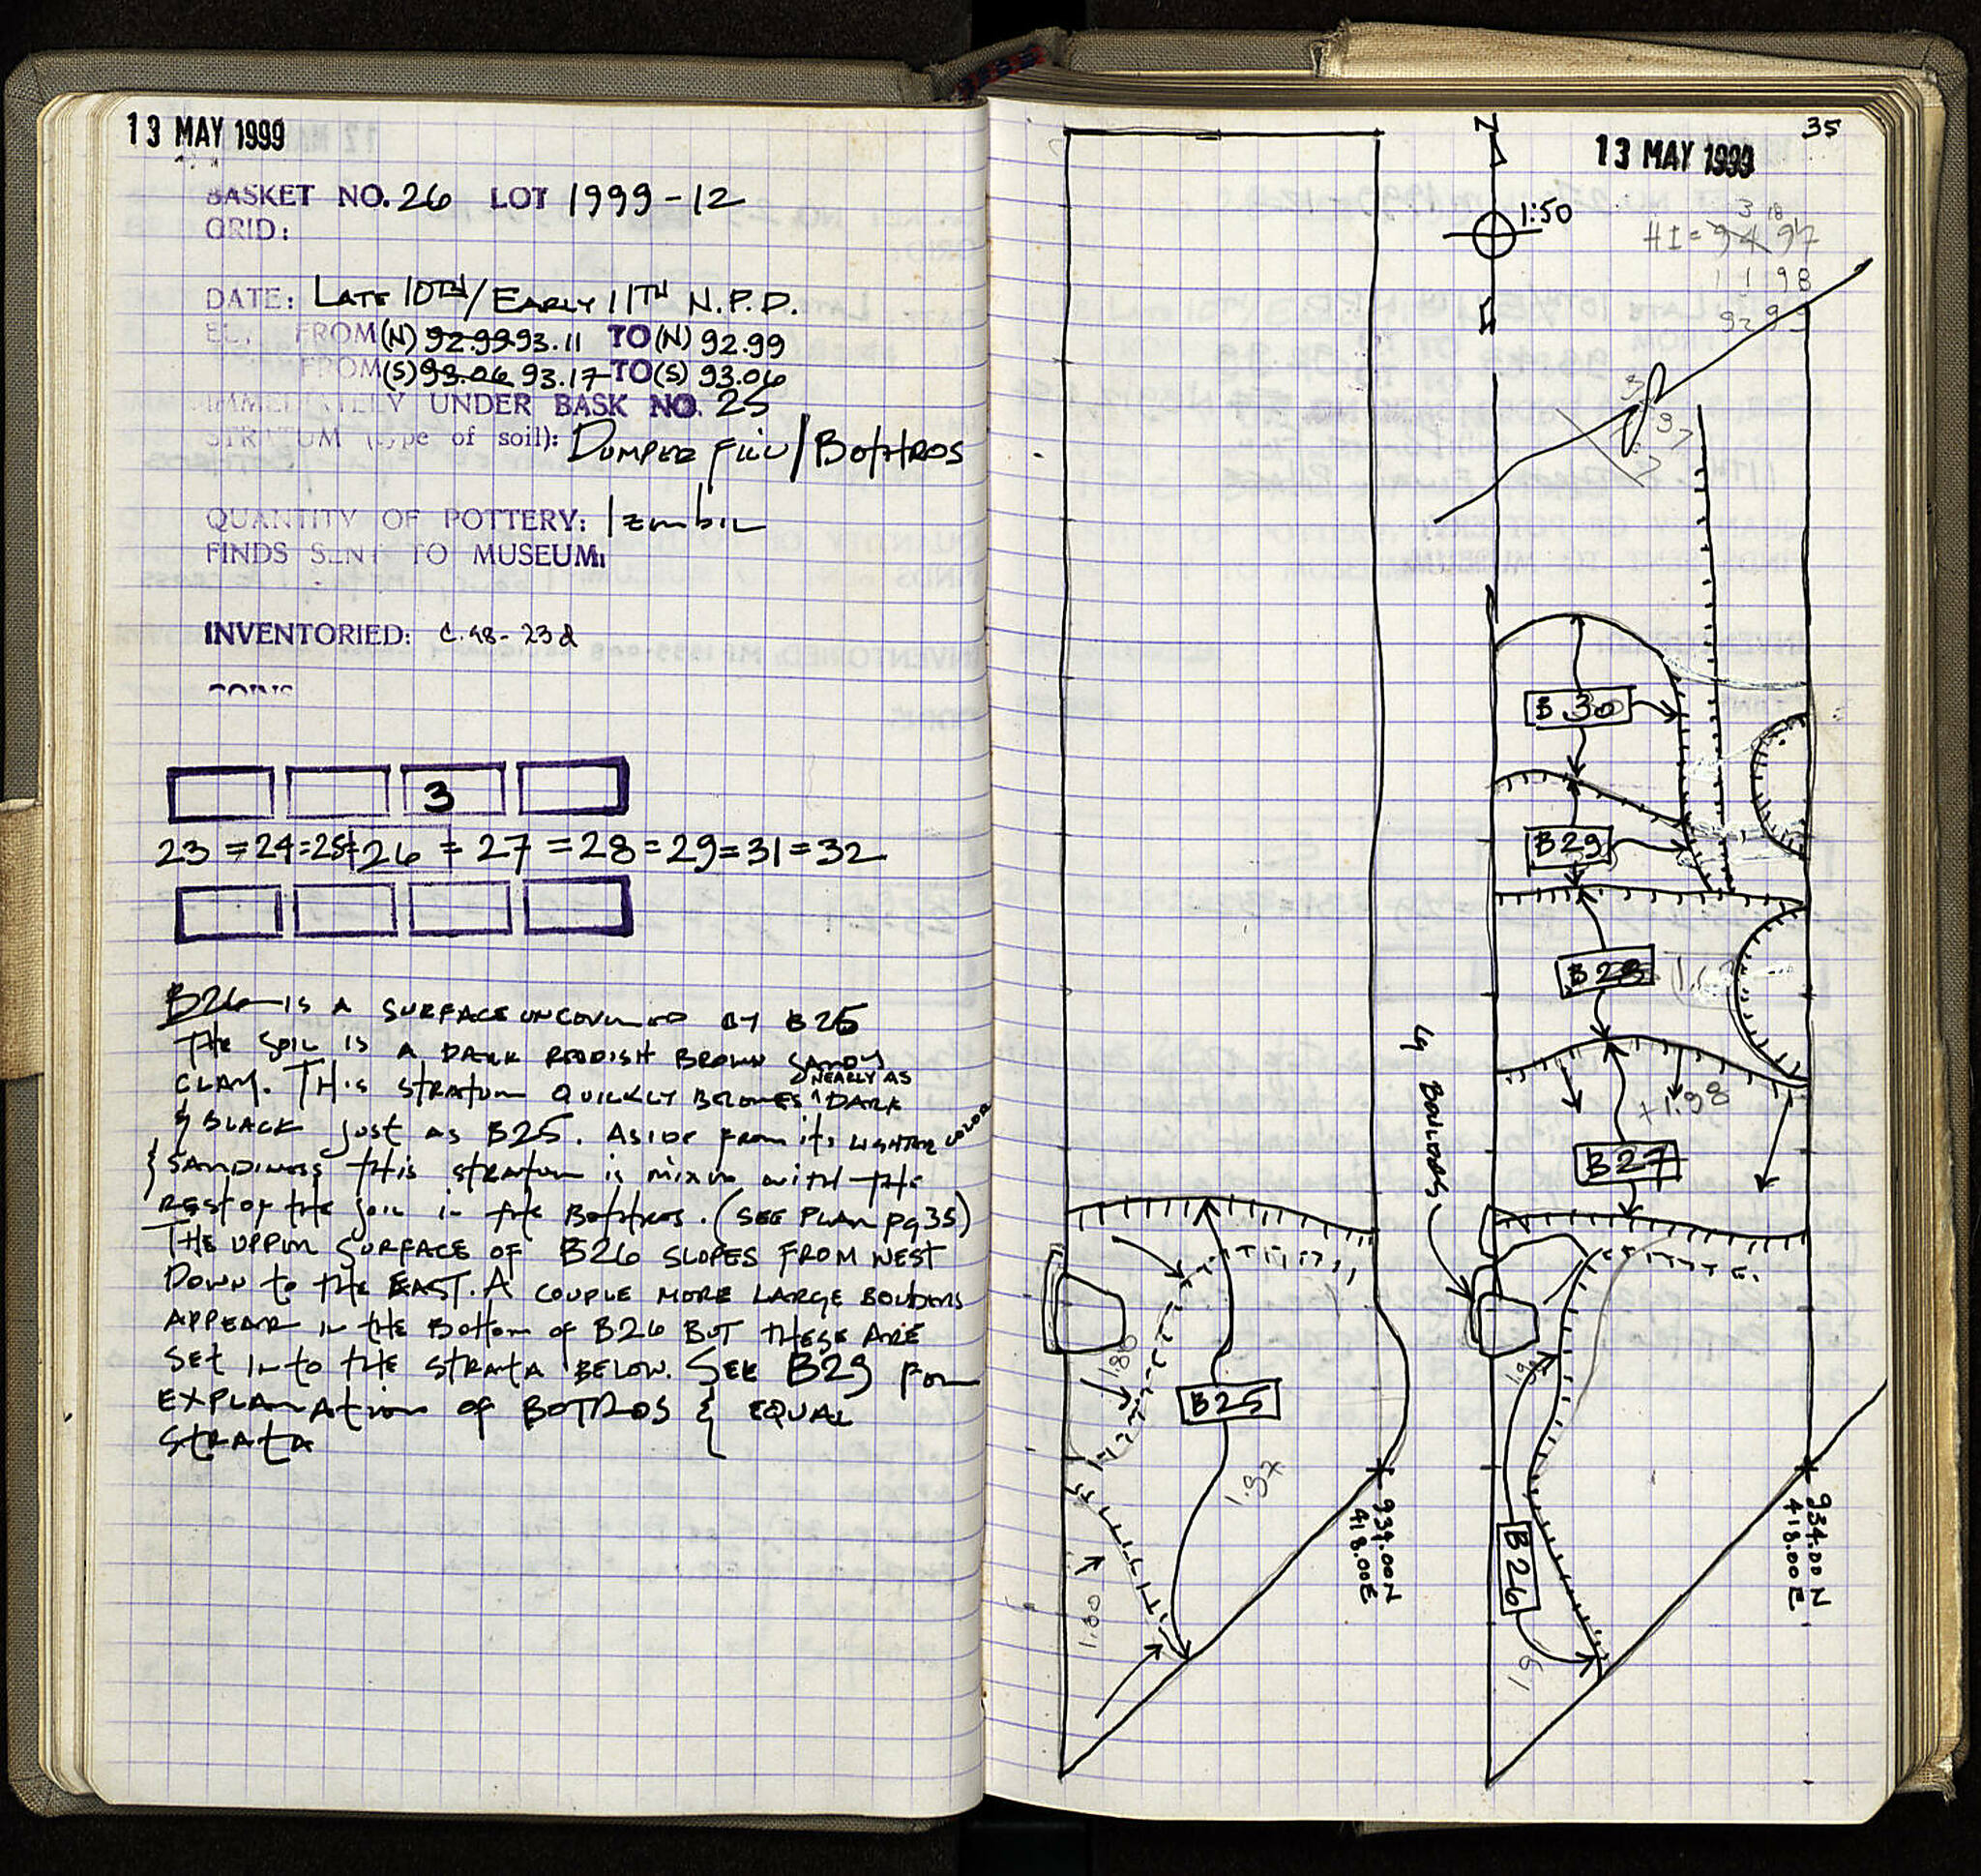 13 MAY 1999
BASKET NO. 26 LOT 1999-12
GRID:
DATE: LATE 10TH/EARLY 11TH N.P.D.
EL. FROM (N) 92.99 93.11 TO (N) 92.99
FROM (S) 93.06 93.17 TO (S) 93.06
IMMEDIATELY UNDER BASK NO. 25
STRATUM (type of soil): DUMPED FILL/BOTHROS
QUANTITY OF POTTERY: 1 zembil
FINDS SENT TO MUSEUM:
INVENTORIED: C.48-23d
COINS
3
23 = 24 = 25 = 26 = 27 = 28 = 29 = 31 = 32
B26 IS A SURFACE UNCOVERED BY B25
THE SOIL IS A DARK REDDISH BROWN SANDY
CLAY. THIS STRATUM QUICKLY BECOMES ^NEARLY AS DARK
& BLACK JUST AS B25. ASIDE FROM ITS LIGHTER COLOR
& SANDINESS THIS STRATUM IS MIXED WITH THE
REST OF THE SOIL IN THE BOTHROS. (SEE PLAN pg 35)
THE UPPER SURFACE OF B26 SLOPES FROM WEST
DOWN TO THE EAST. A COUPLE MORE LARGE BOULDERS
APPEAR IN THE BOTTOM OF B26 BUT THESE ARE
SET INTO THE STRATA BELOW. SEE B29 FOR
EXPLANATION OF BOTROS & EQUAL
STRATA
35
13 MAY 1999
N
1:50
HI = 94 97
3 18
1 1 98
B 30
B29
B 28
+1.98
B27
Lg BOULDERS
1.80
B25
1.97
1.80
934.00N
418.00E
B26
19
934.00N
418.00E